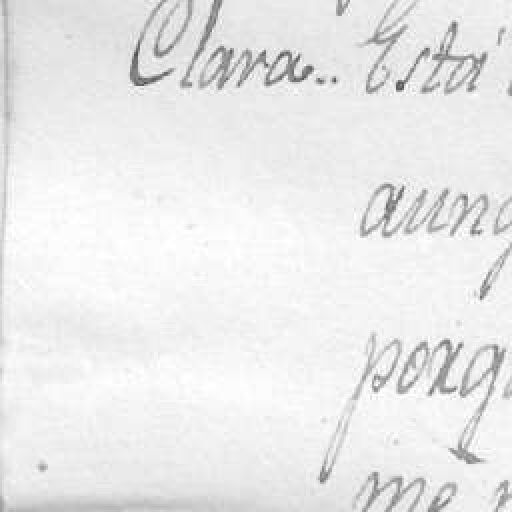 Clara.. Está
aunq
porq
me